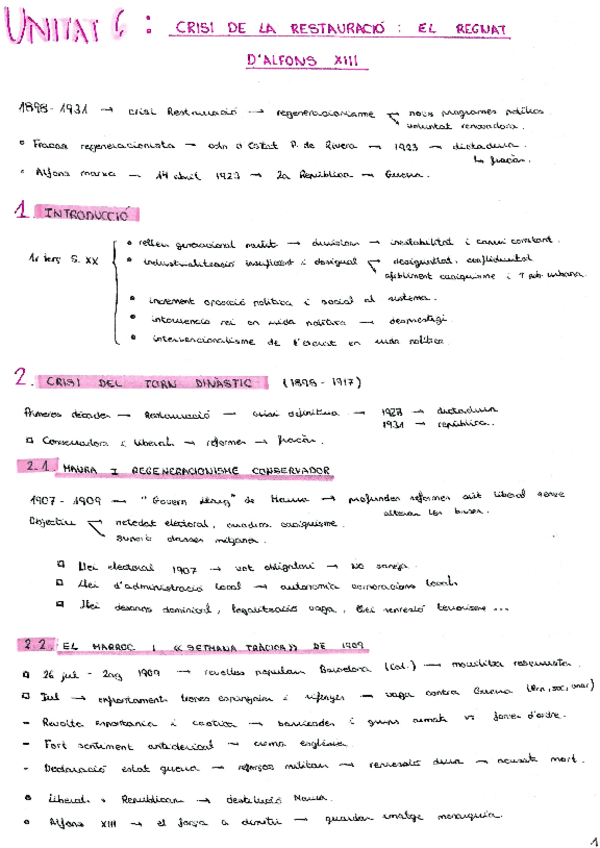 UNITAT 6 : CRISI DE LA RESTAURACIÓ : EL REGNAT
D'ALFONS XIII
1898 - 1931 → crisi Restauració → regeneracionisme nous programes polítics
voluntat renovadora.
Fracàs regeneracionista → cop d'Estat P. de Rivera → 1923 → dictadura.
↳ fracàs.
Alfons marxa → 14 abril 1923 → 2a República → Guerra.
1 INTRODUCCIÓ
1r terç S. XX
relleu generacional partits → divisions → inestabilitat i canvi constant.
industrialització insuficient i desigual desigualtat, conflictivitat
afebliment caciquisme i ↑ pob. urbana.
increment oposició política i social al sistema.
intervenció rei en vida política → desprestigi.
intervencionalisme de l'exèrcit en vida política.
2. CRISI DEL TORN DINÀSTIC (1898 - 1917)
Primeres dècades → Restauració → crisi definitiva → 1923 → dictadura
1931 → república.
Conservadors i liberals → reformes → fracàs.
2.1. MAURA I REGENERACIONISME CONSERVADOR
1907 - 1909 → "Govern llarg" de Maura → profundes reformes sist. liberal sense
alterar les bases.
Objectiu netedat electoral, caciquisme.
suport classes mitjanes.
Llei electoral 1907 → vot obligatori → No sanejà.
Llei d'administració local → autonomia corporacions locals.
Llei descans dominical, legalització vaga, Llei repressió terrorisme ...
2.2. EL MARROC I «SETMANA TRÀGICA» DE 1909
26 jul - 2ag 1909 → revoltes populars Barcelona (Cat.) → mobilitza reservistes.
Jul → enfrontament tropes espanyoles i rifenyes → vaga contra Guerra
- Revolta espontània i caòtica → barricades i grups armats vs forces d'ordre.
- Fort sentiment anticlerical → crema esglésies.
- Declaració estat guerra → reforços militars → repressió dura → mort.
Liberals + Republicans → destitució Maura.
Alfons XIII → el força a dimitir → guardar imatge monarquia.
1